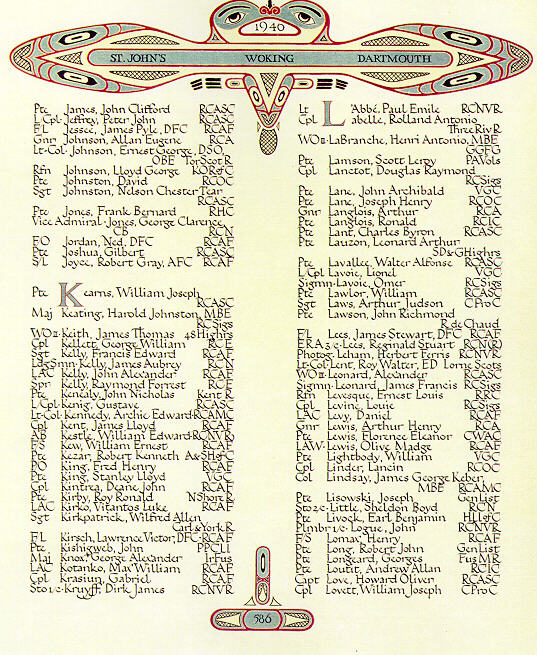 1946
ST. JOHN'S WOKING DARTMOUTH
Pte James, John Clifford RCASC
L/Cpl Jeffrey, Peter John RCASC
F/L Jessee, James Pyle, DFC RCAF
Gnr Johnson, Allan Eugene RCA
Lt-Col Johnson, Ernest George, DSO,
OBE Tor Scot R
Rfn Johnson, Lloyd George KOR of C
Pte Johnston, David RCOC
Sgt Johnston, Nelson Chester Tear
RCASC
Pte Jones, Frank Bernard RHC
Vice Admiral Jones, George Clarence,
CB RCN
F/O Jordan, Ned, DFC RCAF
Pte Joshua, Gilbert RCASC
S/L Joyce, Robert Gray, AFC RCAF
Pte Kearns, William Joseph
RCASC
Maj Keating, Harold Johnston, MBE
RCSigs
WO2 Keith, James Thomas 48 Highrs
Cpl Kellett, George William RCE
Sgt Kelly, Francis Edward RCAF
Ldg Smn Kelly, James Aubrey RCN
LAC Kelly, John Alexander RCAF
Spr Kelly, Raymond Forrest RCE
Pte Kenealy, John Nicholas Kent R
L/Cpl Kenig, Gustave RCASC
Lt-Col Kennedy, Archie Edward RCAMC
Cpl Kent, James Lloyd RCAF
AB Kestle, William Edward RCNVR
F/S Kew, William Ernest RCAF
Pte Kezar, Robert Kenneth A&SH of C
P/O King, Fred Henry RCAF
Pte King, Stanley Lloyd VGC
Cpl Kintrea, Deane John RCAF
Pte Kirby, Roy Ronald N Shore R
LAC Kirko, Vitantos Luke RCAF
Sgt Kirkpatrick, Wilfred Allen
Carl & York R
F/L Kirsch, Lawrence Victor, DFC RCAF
Pte Kishigweb, John PPCLI
Maj Knox, George Alexander Ir Fus
LAC Kotanko, Max William RCAF
Cpl Krasiun, Gabriel RCAF
Sto 1/c Kruyff, Dirk James RCNVR
Lt L'Abbé, Paul Emile RCNVR
Cpl Labelle, Rolland Antonio
Three Riv R
WO1 LaBranche, Henri Antonio, MBE
GGFG
Pte Lamson, Scott Leroy PA Vols
Cpl Lanctot, Douglas Raymond
RCSigs
Pte Lane, John Archibald VGC
Pte Lane, Joseph Henry RCOC
Gnr Langlois, Arthur RCA
Pte Langlois, Ronald RCIC
Pte Lant, Charles Byron RCASC
Pte Lauzon, Leonard Arthur
SD&G Highrs
Pte Lavallee, Walter Alfonse RCASC
L/Cpl Lavoie, Lionel VGC
Sigmn Lavoie, Omer RCSigs
Pte Lawlor, William RCASC
Sgt Laws, Arthur Judson C Pro C
Pte Lawson, John Richmond
R de Chaud
F/L Lees, James Stewart, DFC RCAF
ERA 3/c Lees, Reginald Stuart RCN(R)
Photog. Leham, Herbert Ferris RCNVR
Lt-Col Lent, Roy Walter, ED Lorne Scots
WO2 Leonard, Alexander RCASC
Sigmn Leonard, James Francis RCSigs
Rfn Levesque, Ernest Louis RRC
Cpl Levine, Louie RCSigs
LAC Levy, Daniel RCAF
Gnr Lewis, Arthur Henry RCA
Pte Lewis, Florence Eleanor CWAC
LAW Lewis, Olive Madge RCAF
Pte Lightbody, William VGC
Cpl Linder, Lancin RCOC
Col Lindsay, James George Keber,
MBE RCAMC
Pte Lisowski, Joseph Gen List
Sto 2/c Little, Sheldon Boyd RCN
Pte Livock, Earl Benjamin HLI of C
Plmbr 1/c Logue, John RCNVR
F/S Lomax, Henry RCAF
Pte Long, Robert John Gen List
Pte Longeard, Georges Fus MR
Pte Loutit, Andrew Allan RCIC
Capt Love, Howard Oliver RCASC
Cpl Lovett, William Joseph C Pro C
586